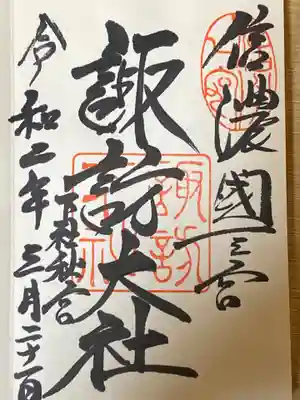 信濃國一之宮
諏訪大社
下社秋宮
令和二年三月二十一日